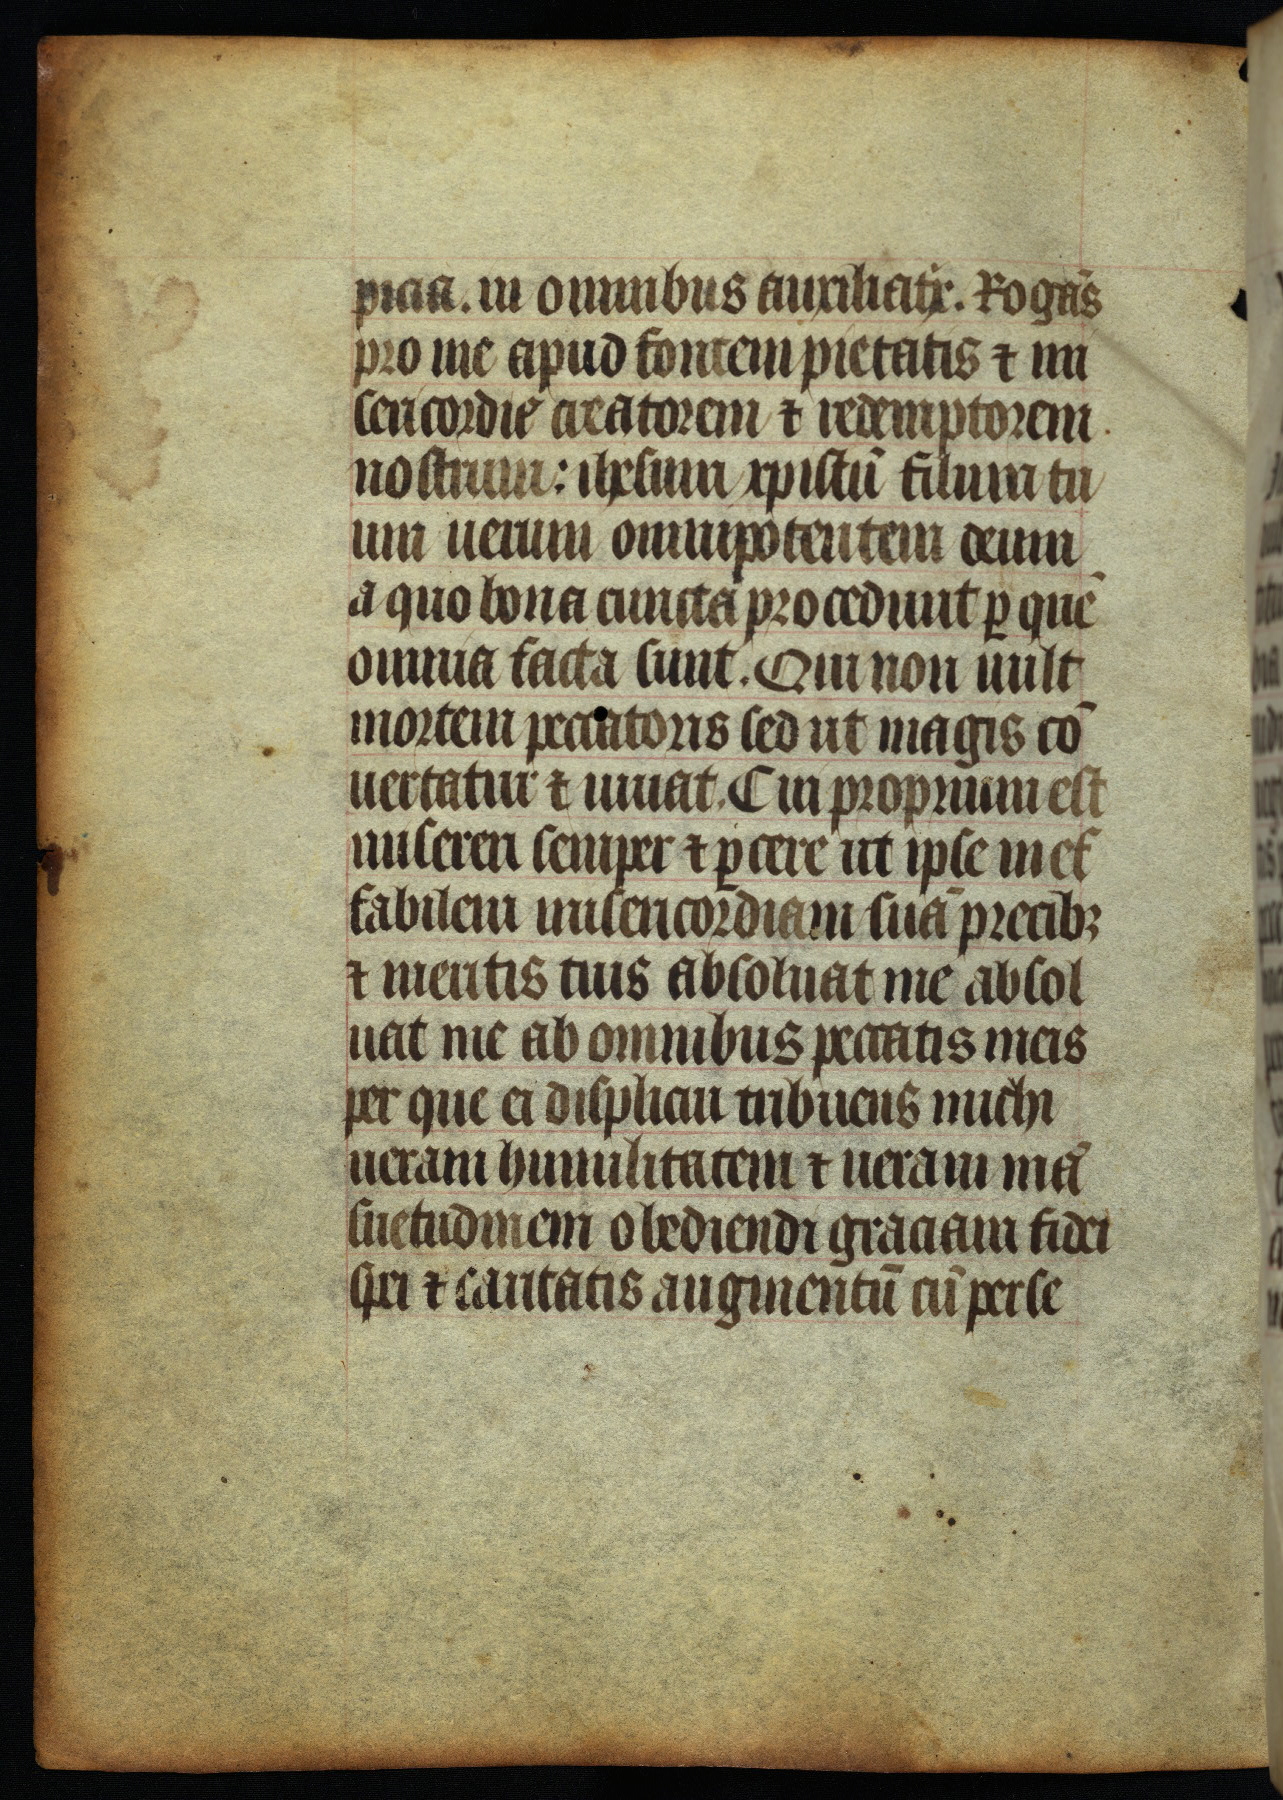 picia. in omnibus auxiliatrix. Rogās
pro me apud fontem pietatis ⁊ mi
sericordie creatorem ⁊ redemptorem
nostrum: ihesum xpistū filium tu
um uerum omnipotentem deum
a quo bona cuncta procedunt ꝑ quē
omnia facta sunt. Qui non uult
mortem peccatoris sed ut magis cō
uertatur ⁊ uiuat. Cui proprium est
misereri semper ⁊ ꝑcere ut ipse inef
fabilem misericordiam suā precibꝫ
⁊ meritis tuis absoluat me absol
uat me ab omnibus peccatis meis
per que ei displicui tribuens michi
ueram humilitatem ⁊ ueram mā
suetudinem obediendi graciam fidei
spei ⁊ caritatis augmentū cū perse